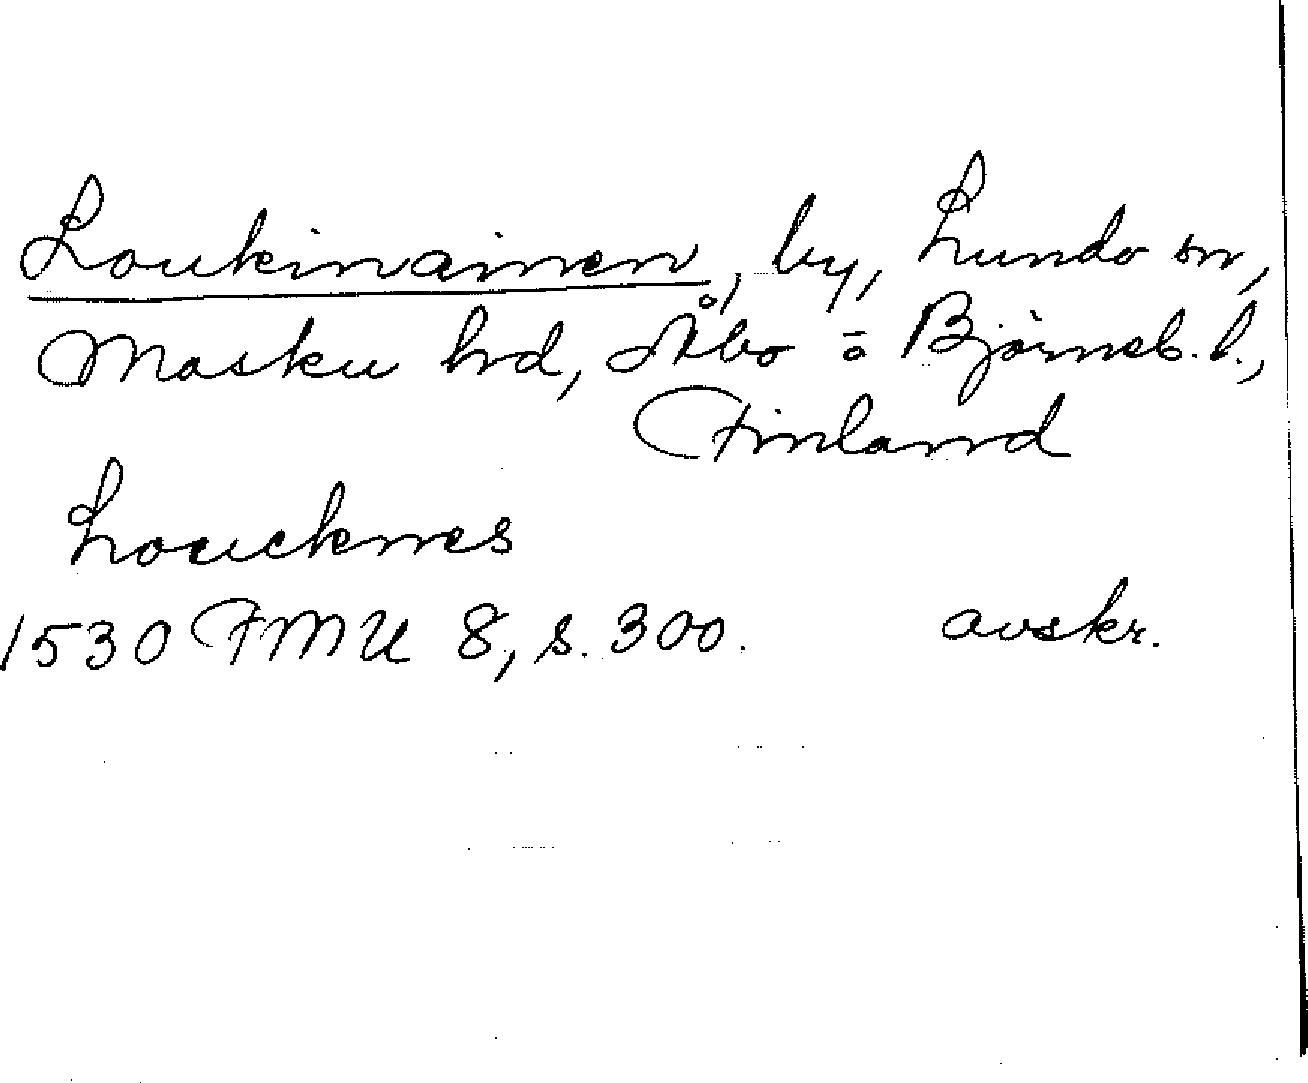 Loukinainen, by, Lundo sn,
Masku hd, Åbo o Björneb. l.,
Finland
Loucknes
1530 FMU 8, s. 300. avskr.